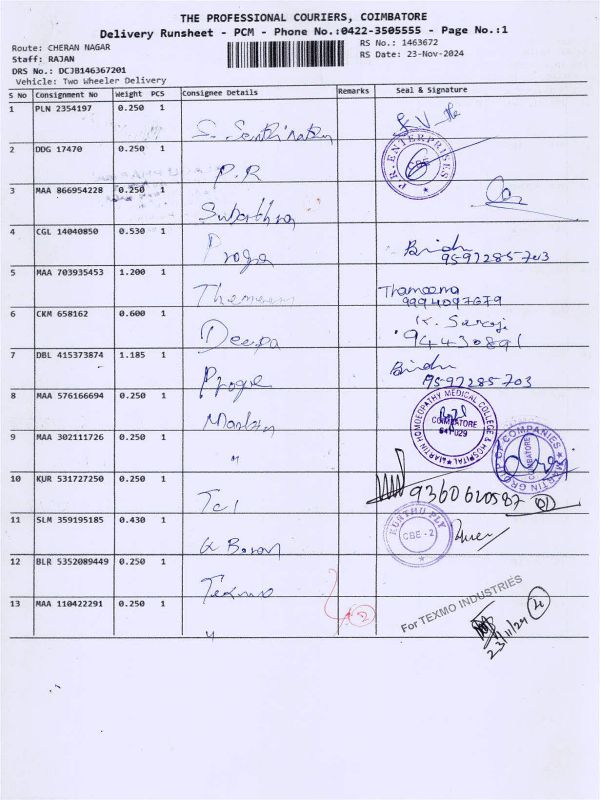 THE PROFESSIONAL COURIERS, COIMBATORE
Delivery Runsheet - PCM - Phone No.:0422-3505555 - Page No.:1
Route: CHERAN NAGAR
RS No.: 1463672
Staff: RAJAN
RS Date: 23-Nov-2024
DRS No.: DCJB146367201
Vehicle: Two Wheeler Delivery
S No Consignment No Weight PCS Consignee Details Remarks Seal & Signature
1 PLN 2354197 0.250 1
2 DDG 17470 0.250 1 P.R P.R.ENTERPRISES CBE
3 MAA 866954228 0.250 1
4 CGL 14040850 0.530 1 Bindu
9597285703
5 MAA 703935453 1.200 1 Thameem Thameema
9994097679
6 CKM 658162 0.600 1 Deepa K. Saroji
94430891
7 DBL 415373874 1.185 1 Bindu
9597285703
8 MAA 576166694 0.250 1 Martin MARTIN HOMOEOPATHY MEDICAL COLLEGE & HOSPITAL COIMBATORE 641 029
9 MAA 302111726 0.250 1 " MARTIN GROUP OF COMPANIES COIMBATORE
10 KUR 531727250 0.250 1 9360620587
11 SLM 359195185 0.430 1 PLY CBE - 2
12 BLR 5352089449 0.250 1 Texmo
13 MAA 110422291 0.250 1 " 2 For TEXMO INDUSTRIES
23/11/24